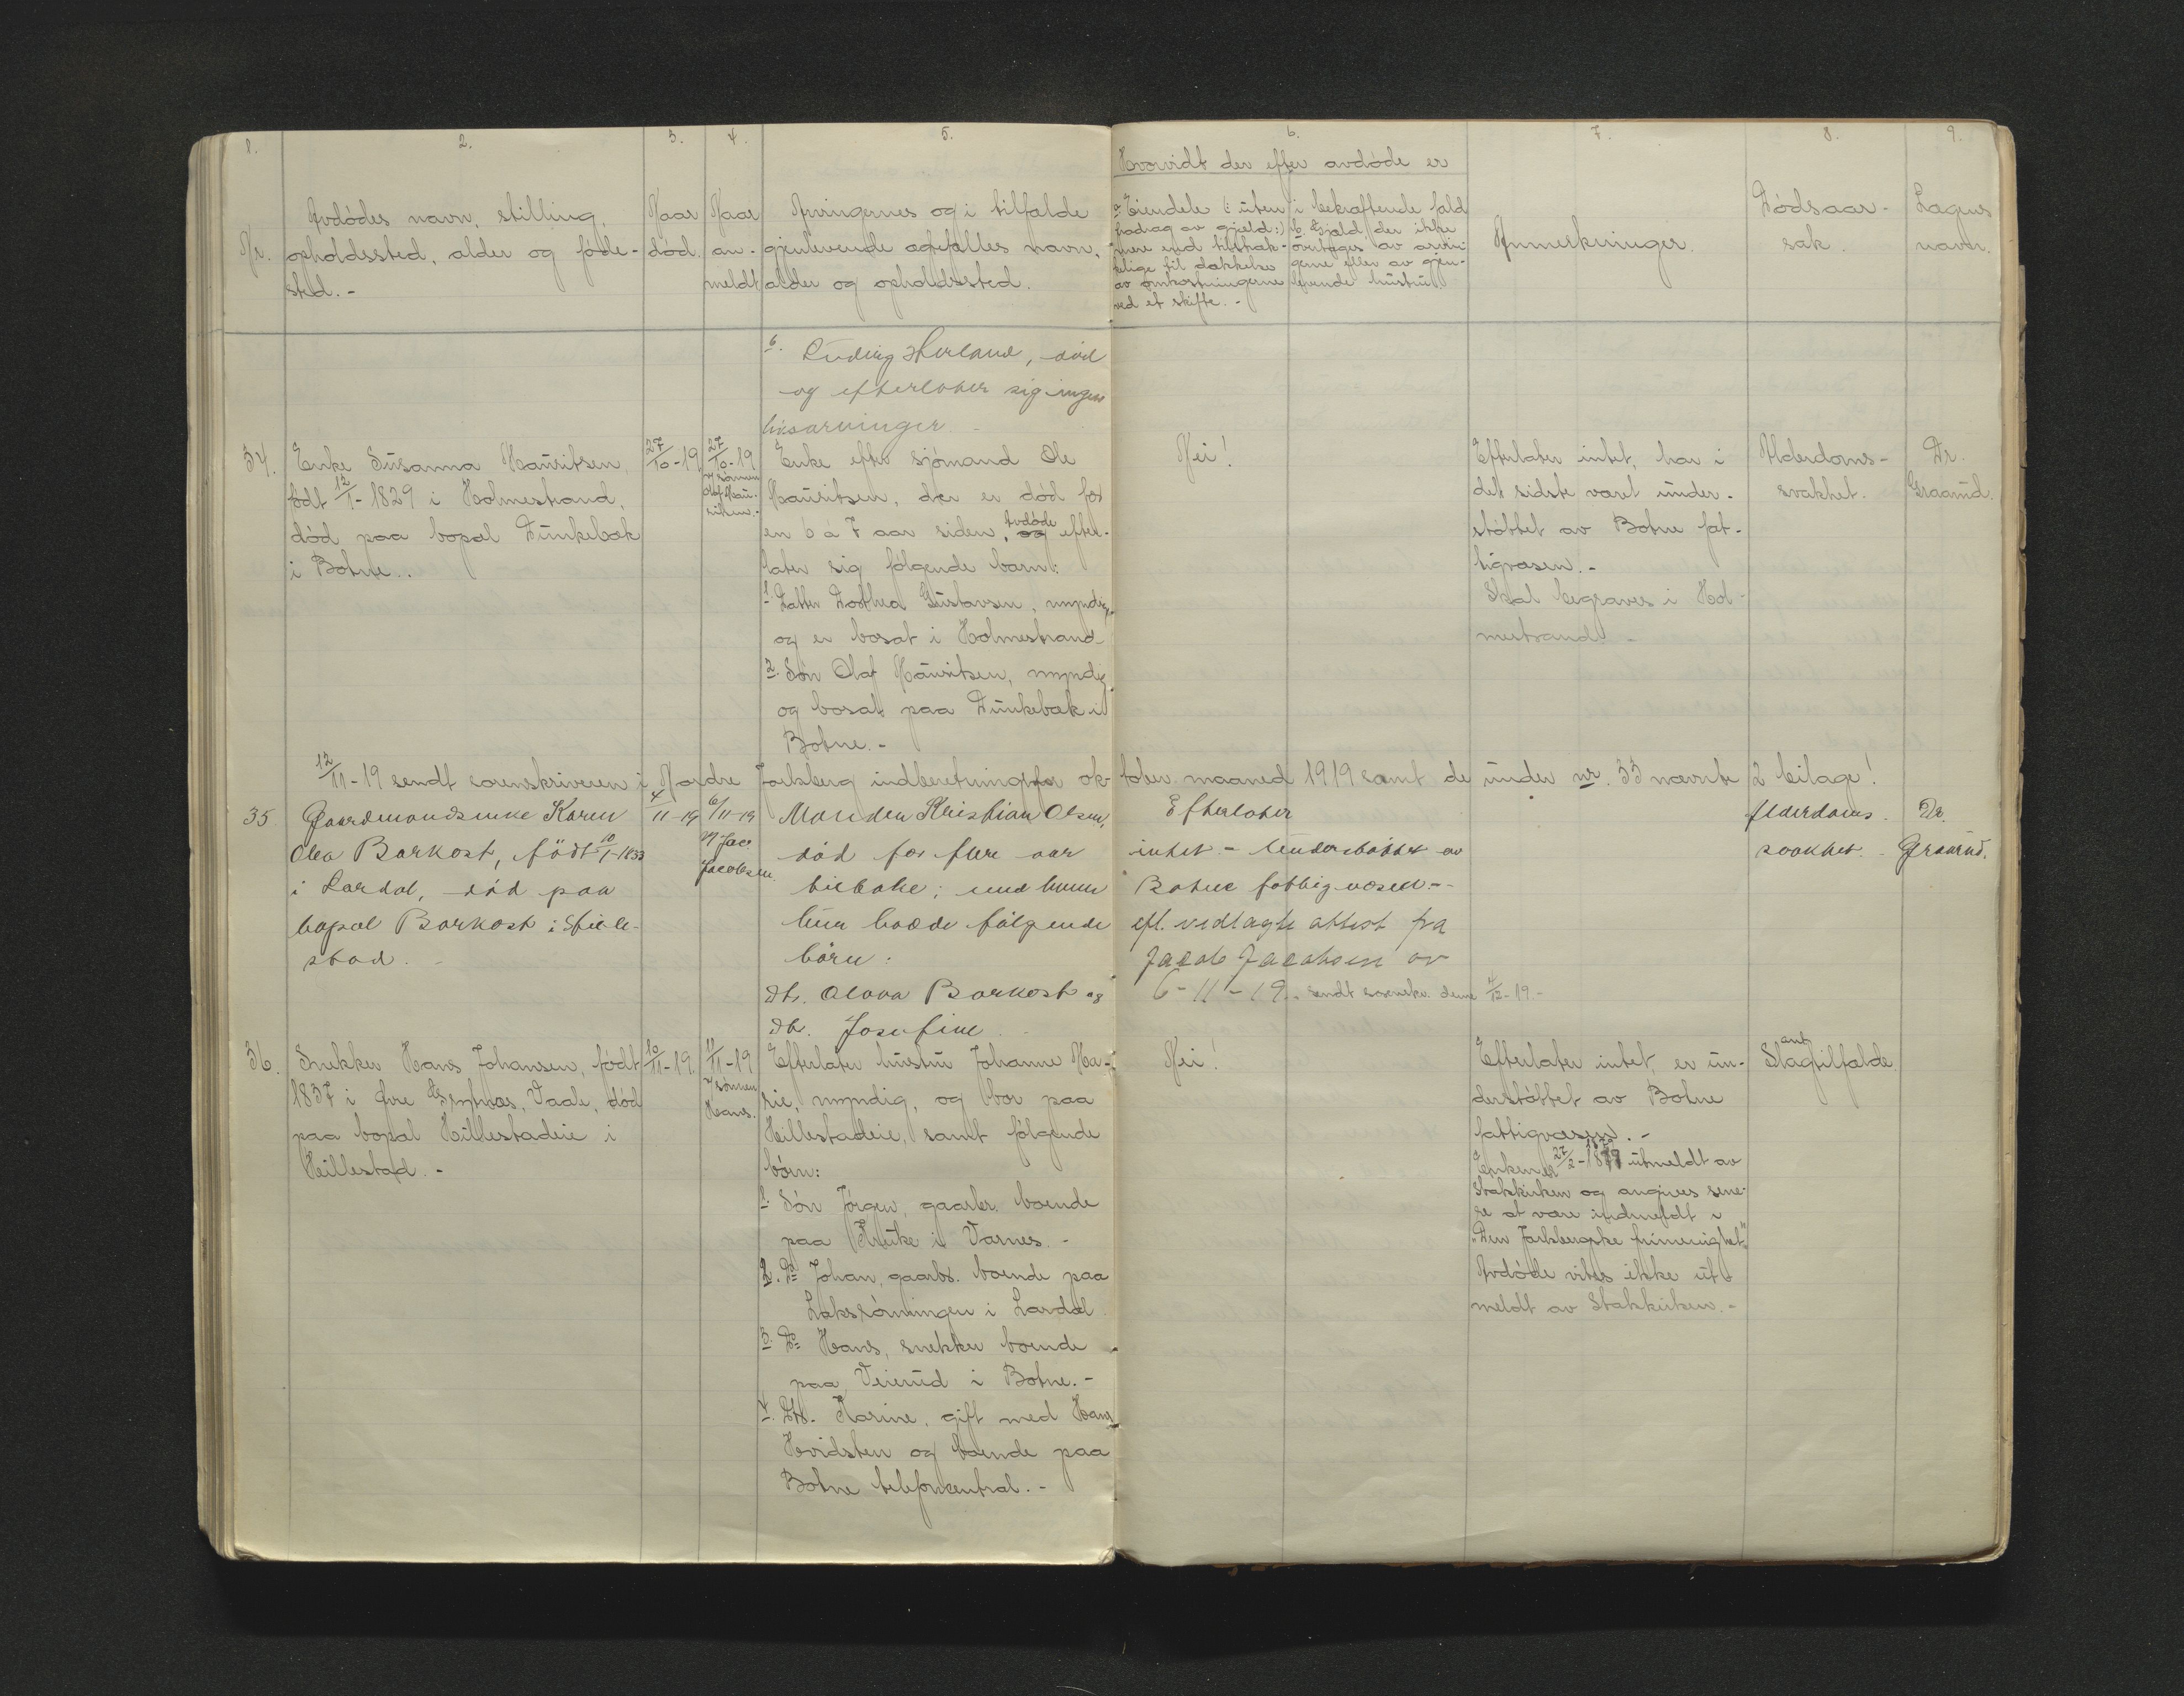 1. 2. 3. 4. 5. 6. 7. 8. 9.
Nr.
Avdødes navn, stilling,
opholdssted, alder og føde-
sted. -
Naar
død.
Naar
an-
meldt
Arvingernes og i tilfælde
gjenlevende ægtefælles navn,
alder og opholdssted.
Hvorvidt der efter avdøde er
a. Eiendele (: uten
fradrag av gjæld :)
mere end tilstræk-
kelige til dækkelse
av omkostningerne
ved et skifte. -
i bekræftende fald
b. Gjæld der ikke
overtages av arvin-
gerne eller av gjen-
levende hustru.
Anmerkninger.
Dødsaar-
sak.
Lægens
navn.
6. Ludvig Herland, død
og efterlater sig ingen
livsarvinger -
34.
Enke Susanna Hauritsen,
født 12/1-1829 i Holmestrand,
død paa bopæl Dunkebæk
i Botne..
27/10-19
27/10-19
v/ sønnen
Olaf Hau-
ritsen.-
Enke efter sjømand Ole
Hauritsen, der er død for
en 6 à 7 aar siden, og avdøde efter-
later sig følgende barn:
1. Datter Dorthea Gustavsen, myndig
og er bosat i Holmestrand
2. Søn Olaf Hauritsen, myndig
og bosat paa Dunkebæk i
Botne. -
Nei!
Efterlater intet, har i
det sidste været under-
støttet av Botne fat-
tigvæsen. -
Skal begraves i Hol-
mestrand -
Alderdoms-
svakhet.
Dr.
Graarud.
12/11-19 sendt sorenskriveren i Nordre Jarlsberg indberetning for ok-
tober maaned 1919 samt de under nr. 33 nævnte 2 bilage!
35.
Gaardmandsenke Karen
Olea Barkost, født 10/1-1833
i Lardal, død paa
bopæl Barkost i Hille-
stad. -
4/11-19
6/11-19
v/ Jac.
Jacobsen.
Manden Kristian Olsen,
død for flere aar
tilbake; med ham
hun hadde følgende
børn:
dtr. Olava Barkost og
dtr. Josefine -
Efterlater
intet - understøttet av
Botne fattigvæsen. -
efl. vedlagte attest fra
Jacob Jacobsen av
6-11-19. - sendt sorenskr. denne 4/12-19. -
Alderdoms
svakhet. -
Dr.
Graarud.
36.
Snekker Hans Johansen, født
1837 i Øvre Grytnes, Vaale, død
paa bopæl Hillestadeie i
Hillestad. -
10/11-19.
11/11-19
v/ sønnen
Hans.
Efterlater hustru Johanne Ma-
rie, myndig, og bor paa
Hillestadeie, samt følgende
børn:
1. Søn Jørgen, gaardbr. boende
paa Kruke i Varnes. -
2. Do Johan, gaardbr. boende paa
Laksrønningen i Lardal
3. Do Hans, snekker boende
paa Veierud i Botne. -
4. Dtr. Karine, gift med Hans
Hvidsten og boende paa
Botne telefoncentral. -
Nei!
Efterlater intet, er un-
derstøttet av Botne
fattigvæsen. -
Enken er 27/2-1879 utmeldt av
Statskirken og angives sene-
re at være indmeldt i
"Den Jarlsbergske frimenighet".
Avdøde vites ikke ut-
meldt av Statskirken. -
ant.
Slagtilfælde